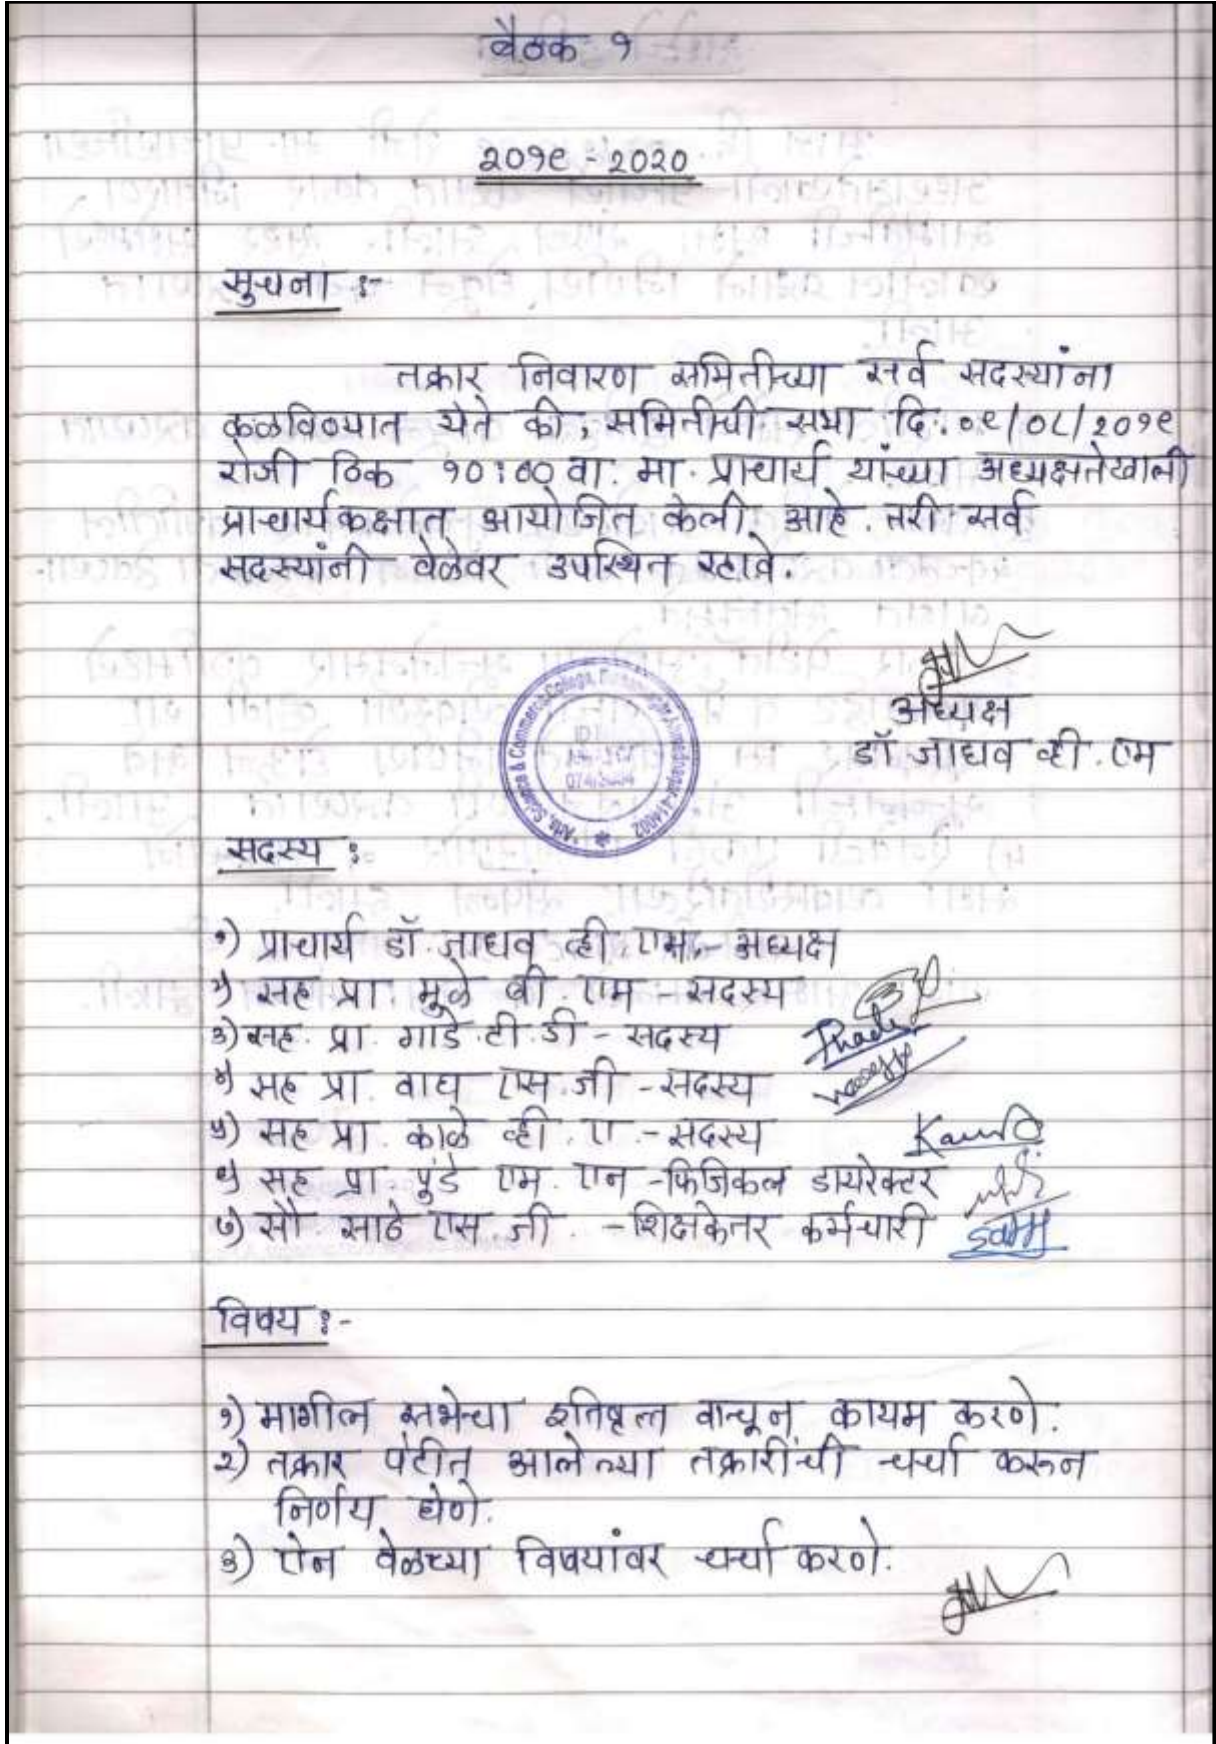 बैठक १
२०१९ - २०२०
सुचना :-
तक्रार निवारण समितीच्या सर्व सदस्यांना
कळविण्यात येते की, समितीची सभा दि. ०९/०८/२०१९
रोजी ठिक १०:०० वा. मा. प्राचार्य यांच्या अध्यक्षतेखाली
प्राचार्य कक्षात आयोजित केली आहे. तरी सर्व
सदस्यांनी वेळेवर उपस्थित रहावे.
अध्यक्ष
डॉ जाधव व्ही. एम
Arts, Science & Commerce College, Ahmednagar-414002
सदस्य :
१) प्राचार्य डॉ. जाधव व्ही. एम. - अध्यक्ष
२) सह प्रा. मुळे बी. एम - सदस्य
३) सह. प्रा. गाडे. टी. डी - सदस्य
४) सह प्रा. वाघ एस. जी - सदस्य
५) सह प्रा. काळे व्ही. ए. - सदस्य
६) सह प्रा. पुंडे एम. एन - फिजिकल डायरेक्टर
७) सौ. साठे एस. जी. - शिक्षकेतर कर्मचारी
विषय :-
१) मागील सभेचा इतिवृत्त वाचून कायम करणे.
२) तक्रार पेटीत आलेल्या तक्रारींची चर्चा करून
निर्णय घेणे.
३) ऐन वेळच्या विषयांवर चर्चा करणे.